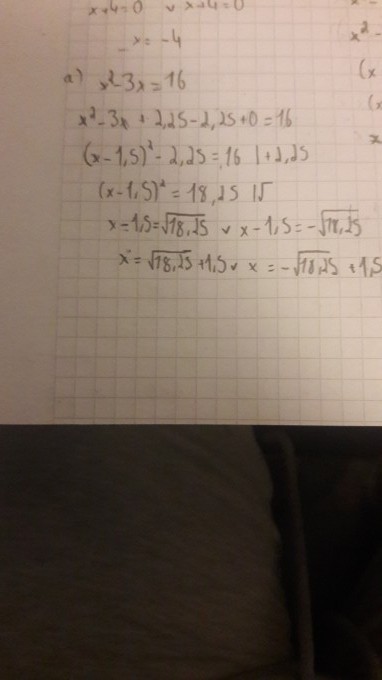 x+4=0 v x+4=0
x=-4
x²-
a) x²-3x=16
(x
x²-3x+2,25-2,25+0=16
(x
(x-1,5)²-2,25=16 |+2,25
x
(x-1,5)²=18,25 |√
x=1,5=√18,25 v x-1,5=-√18,25
x=√18,25+1,5 v x=-√18,25+1,5